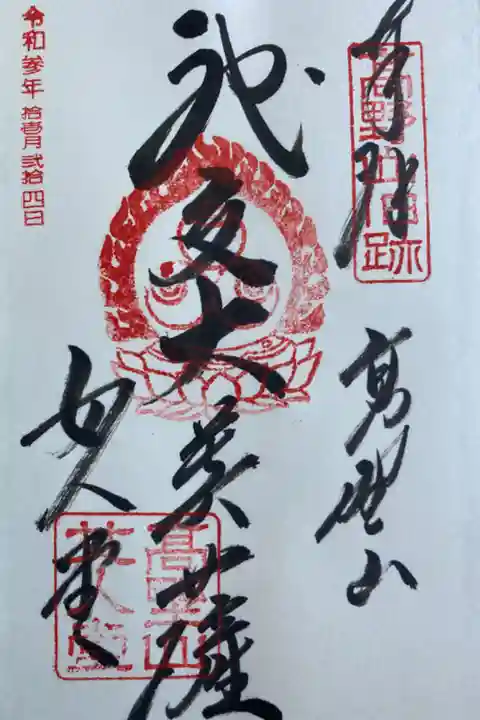 奉拝
高野山
神変大菩薩
女人堂
高野山
女人堂
令和参年 拾壹月 弐拾四日